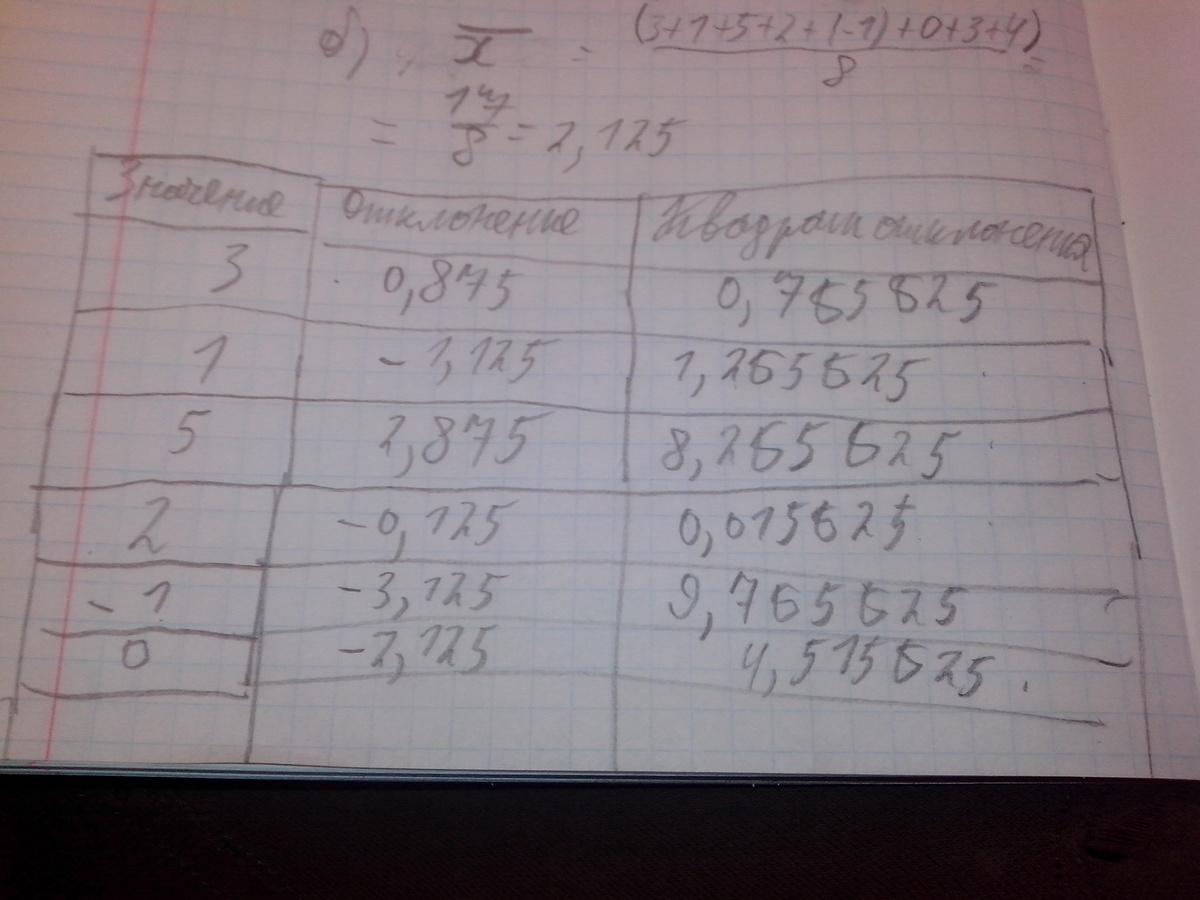 б) x̅ = (3+1+5+2+(-1)+0+3+4)/8 =
= 17/8 = 2,125
Значение Отклонение Квадрат отклонения
3 0,875 0,765625
1 -1,125 1,265625
5 2,875 8,265625
2 -0,125 0,015625
-1 -3,125 9,765625
0 -2,125 4,515625